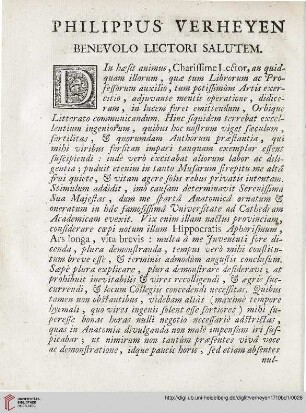 PHILIPPUS VERHEYEN
BENEVOLO LECTORI SALUTEM.
DIu hæsit animus, Charissime Lector, an quid-
quam illorum, quæ tum Librorum ac Pro-
fessorum auxilio, tum potissimùm Artis exer-
citio, adjuvante mentis operatione, didice-
ram, in lucem foret emittendum, Orbique
Litterato communicandum. Hinc siquidem terrebat excel-
lentium ingeniorum, quibus hoc nostrum viget sæculum,
fertilitas, & quorumdam Authorum præstantia, qui
mihi viribus forsitan impari tanquam exemplar essent
suscipiendi: inde verò excitabat aliorum labor ac dili-
gentia; puduit etenim in tanto Musarum strepitu me altâ
frui quiete, & vitam agere solis rebus privatis intentam.
Stimulum addidit, imò causam determinavit Serenissima
Sua Majestas, dum me spartâ Anatomicâ ornatum &
oneratum in hâc famosissimâ Universitate ad Cathedram
Academicam evexit. Vix enim illam nactus provinciam,
considerare cœpi notum illum Hippocratis Aphorismum,
Ars longa, vita brevis: multa à me Juventuti fore di-
cenda, plura demonstranda, tempus verò mihi constitu-
tum breve esse, & terminis admodùm angustis conclusum.
Sæpè plura explicare, plura demonstrare desideravi, at
prohibuit inevitabilis vires recolligendi, & ægris suc-
currendi, & locum Collegis concedendi necessitas. Quibus
tamen non obstantibus, videbam aliàs (maximè tempore
hyemali, quo vires ingenii solent esse fortiores) mihi su-
peresse bonas horas nulli negotio necessariò adstrictas,
quas in Anatomia divulganda non malè impensum iri sus-
picabar; ut nimirum non tantùm præsentes vivâ voce
ac demonstratione, idque paucis horis, sed etiam absentes
nul-
http://digi.ub.uni-heidelberg.de/diglit/verheyen1710bd1/0026